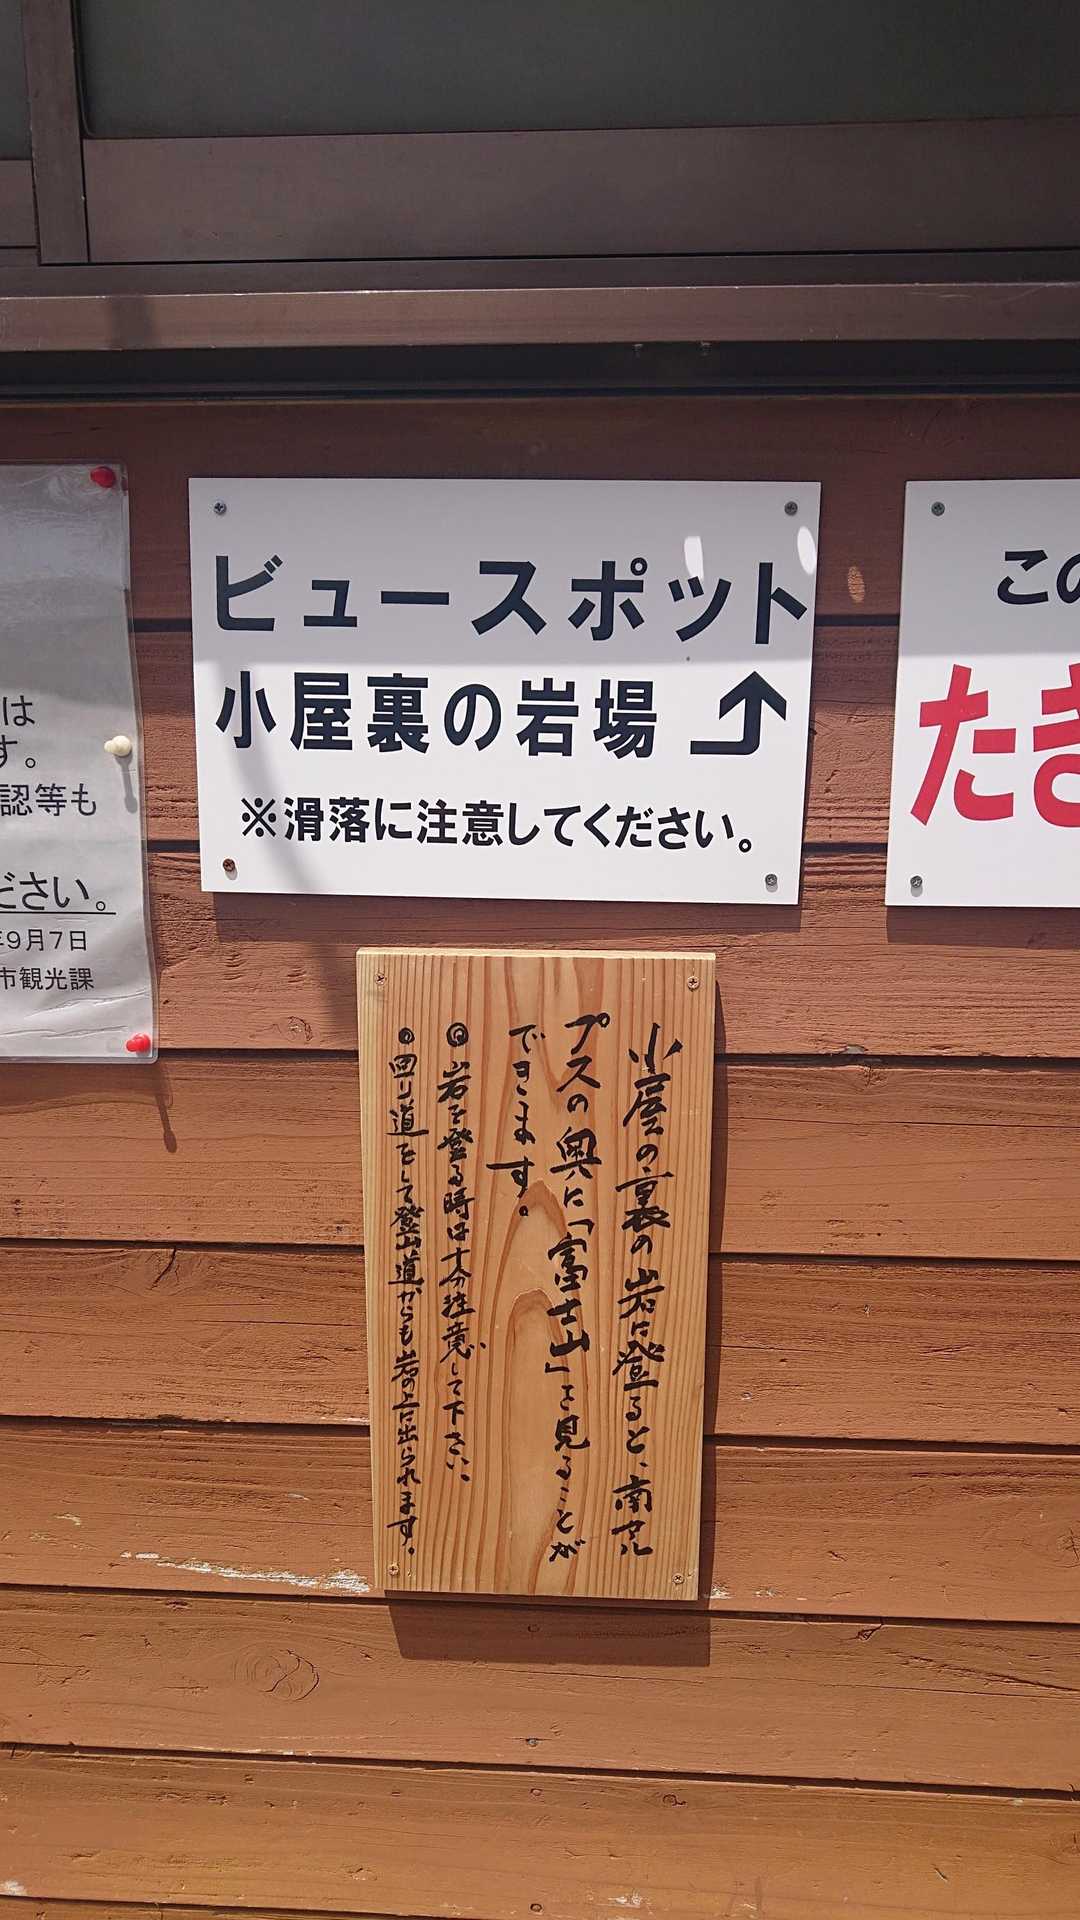 は
す。
認等も
ださい。
年9月7日
市観光課
ビュースポット
小屋裏の岩場
※滑落に注意してください。
この
たき
小屋の裏の岩に登ると、南アル
プスの奥に「富士山」を見ることが
できます。
◎岩を登る時は十分注意して下さい。
○回り道をして登山道からも岩の上に出られます。